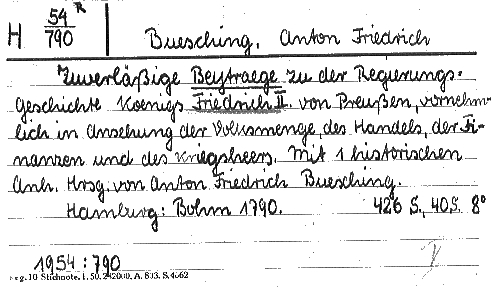 H 54 R
790 Buesching, Anton Friedrich
Zuverläßige Beytraege zu der Regierungs-
Geschichte Koenigs Friedrich II. von Preußen, vornehm-
lich in Ansehung der Volksmenge, des Handels, der Fi-
nanzen und des Kriegsheers. Mit 1 historischen
Anh. Hrsg. von Anton Friedrich Buesching.
Hamburg: Bohn 1790. 426 S., 40 S. 8°
1954:790
10 Stichnote. 1. 50. A. 803. S. 4662